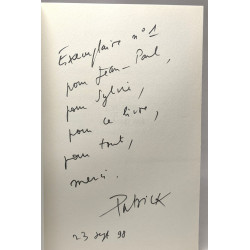 Exemplaire n° 1
pour Jean-Paul,
pour Sylvie,
pour ce livre,
pour tout,
merci.
Patrick
23 sept 98